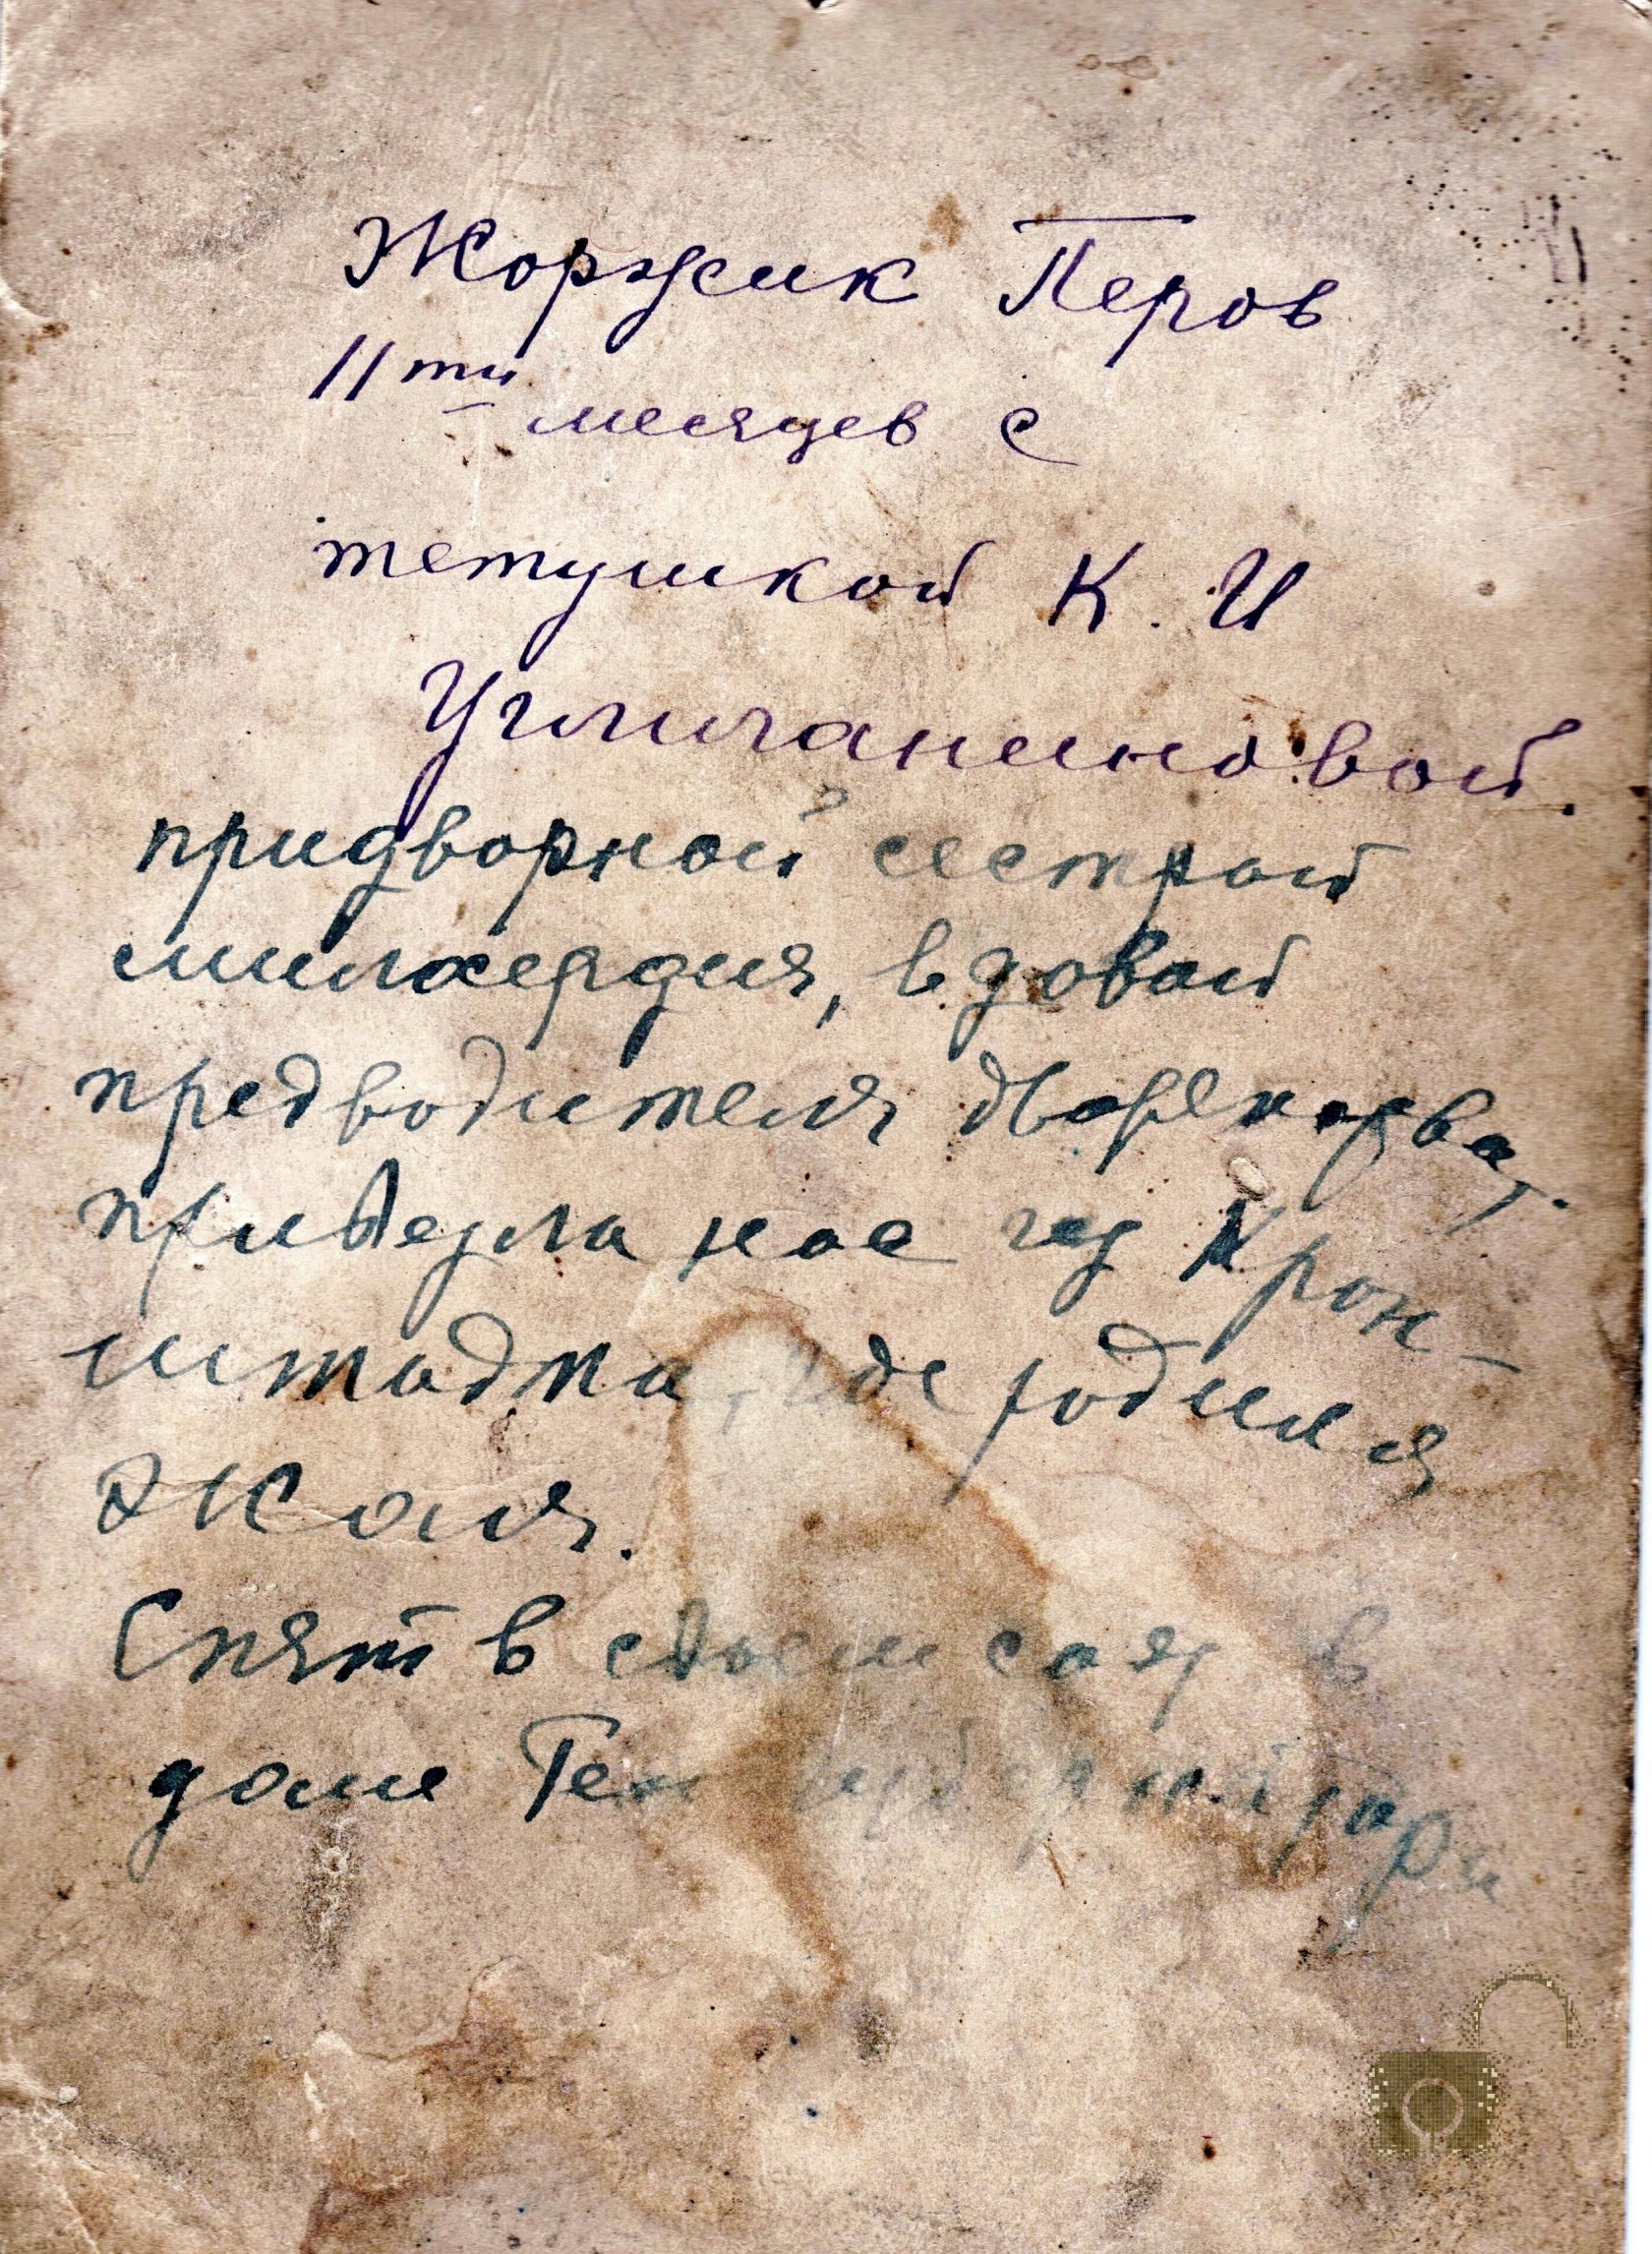 Жоржик Перов
11ти месяцев с
тетушкой К. И
Угличаниновой.
придворной сестрой
милосердия, вдовой
предводителя дворянства,
привезла нас из Крон-
штадта, где родился
Жоля.
Снят в своем саду в
доме Ген губернатора